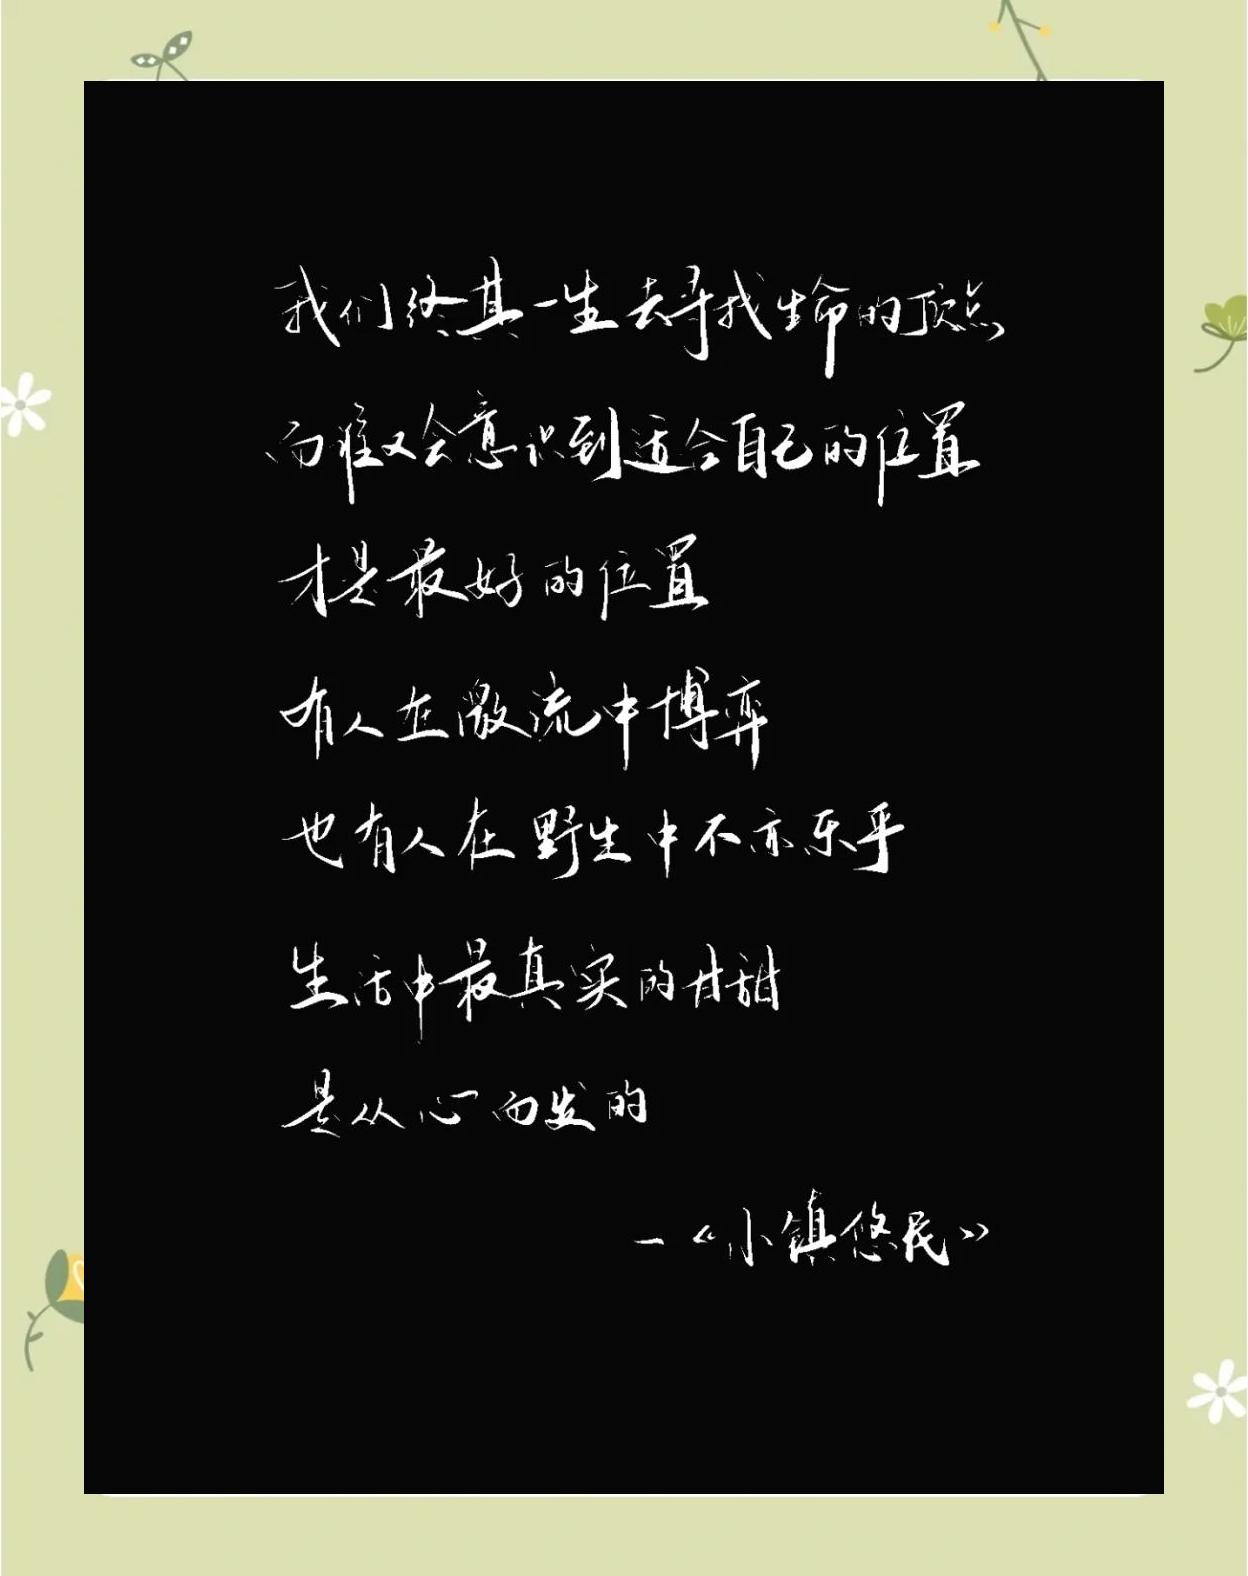 我们终其一生去寻找生命的顶点
而谁又会意识到适合自己的位置
才是最好的位置
有人在激流中博弈
也有人在野生中不亦乐乎
生活中最真实的甘甜
是从心而发的
—《小镇悠民》